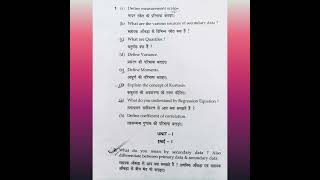 1 (a) Define measurement scale.
मापन स्केल की परिभाषा बताइए।
(b) What are the various sources of secondary data ?
द्वितीयक आँकड़ों के विभिन्न स्रोत क्या हैं ?
(c) What are Quartiles ?
चतुर्थक क्या हैं ?
(d) Define Variance.
प्रसरण की परिभाषा बताइए।
(e) Define Moments.
आघूर्ण की परिभाषा बताइए।
Explain the concept of Kurtosis.
की अवधारणा को स्पष्ट कीजिए।
What do you understand by Regression Equation ?
समीकरण से आप क्या समझते हैं ?
(h) Define coefficient of correlation.
सहसम्बन्ध गुणांक की परिभाषा बताइए।
UNIT – I
इकाई – I
What do you mean by secondary data ? Also
differentiate between primary data & secondary data.
आँकड़ों से आप क्या समझते हैं ? प्राथमिक आँकड़ों एवं
आँकड़ों के बीच भेद भी बताइए।